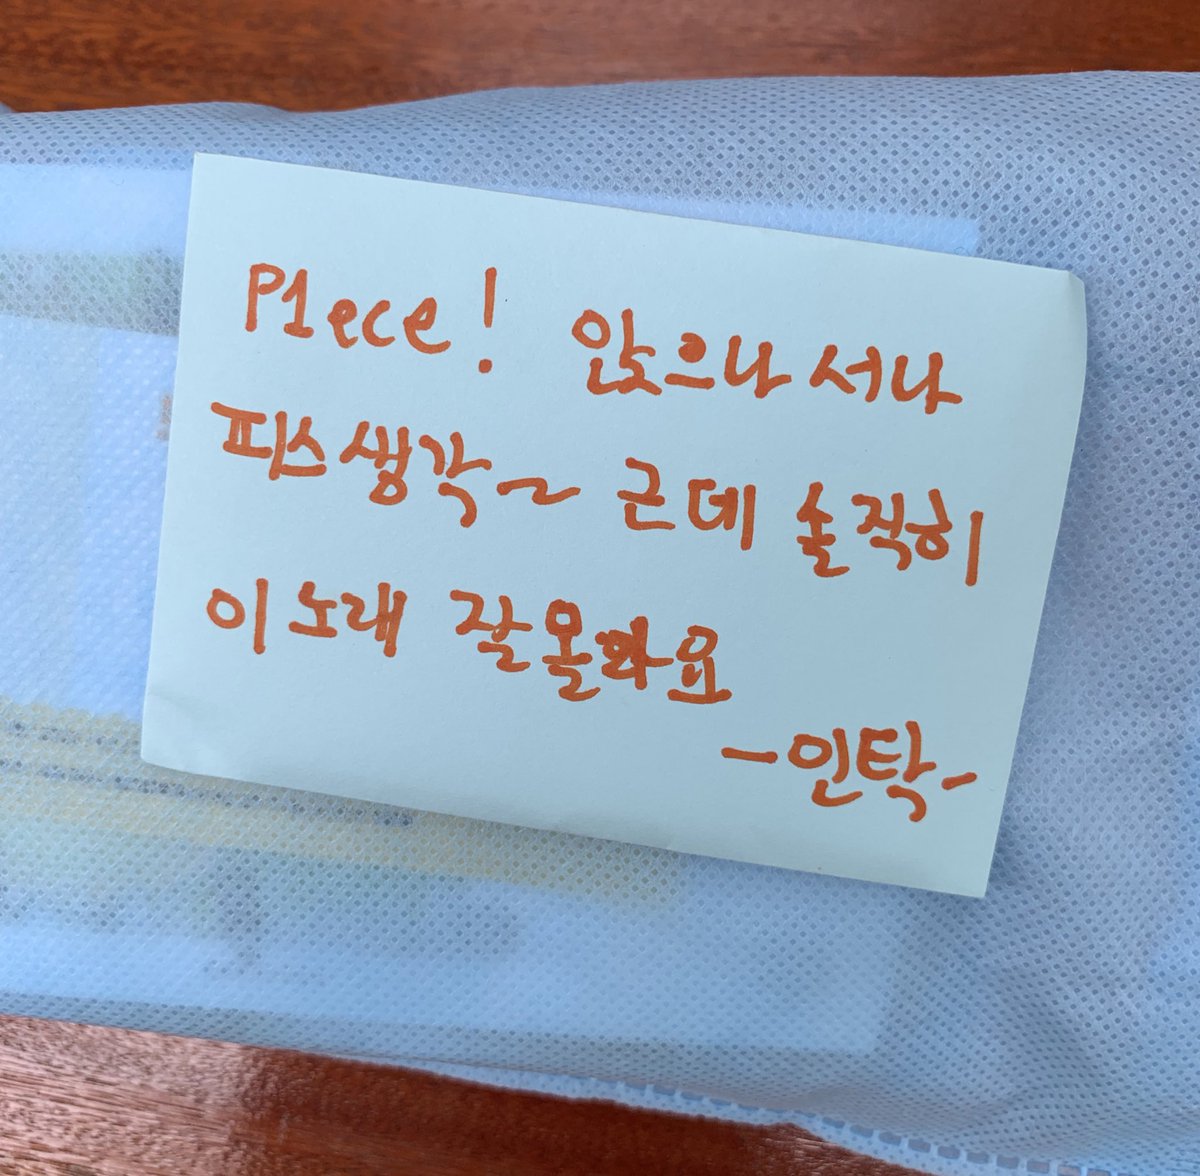 P1ece! 앉으나 서나
피스 생각~ 근데 솔직히
이 노래 잘 몰라요
-인탁-